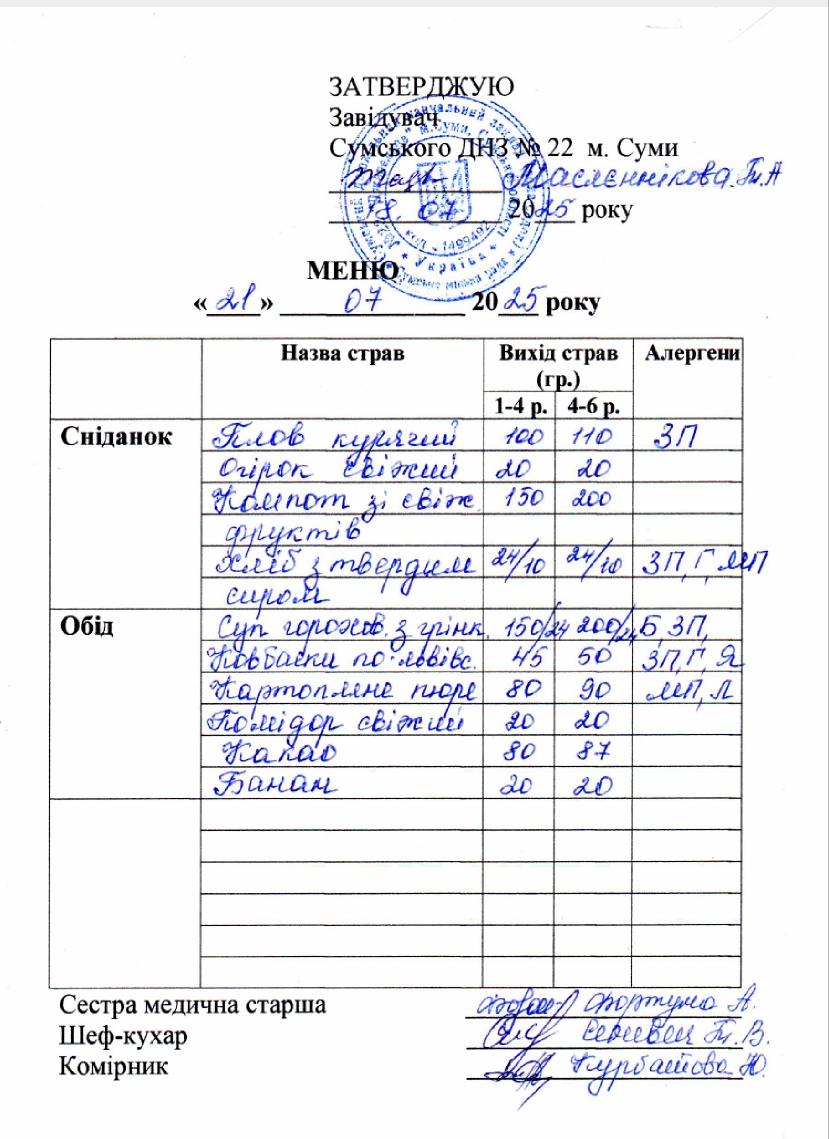 ЗАТВЕРДЖУЮ
Завідувач
Сумського ДНЗ № 22 м. Суми
Маслєннікова. Т.А
18. 07 2025 року
МЕНЮ
«21» 07 2025 року
Назва страв Вихід страв (гр.) Алергени
1-4 р. 4-6 р.
Сніданок Плов курячий 100 110 ЗП
Огірок свіжий 20 20
Компот зі свіж. 150 200
фруктів
Хліб з твердим 24/10 24/10 ЗП, Г, МП
сиром
Обід Суп горохов. з грінк. 150/24 200/24 Б, ЗП,
Ковбаски по-львівс. 45 50 ЗП, Г, Я
Картопляне пюре 80 90 МП, Л
Помідор свіжий 20 20
Какао 80 87
Банан 20 20
Сестра медична старша Фортуна А.
Шеф-кухар Т.В.
Комірник Курбатова Ю.